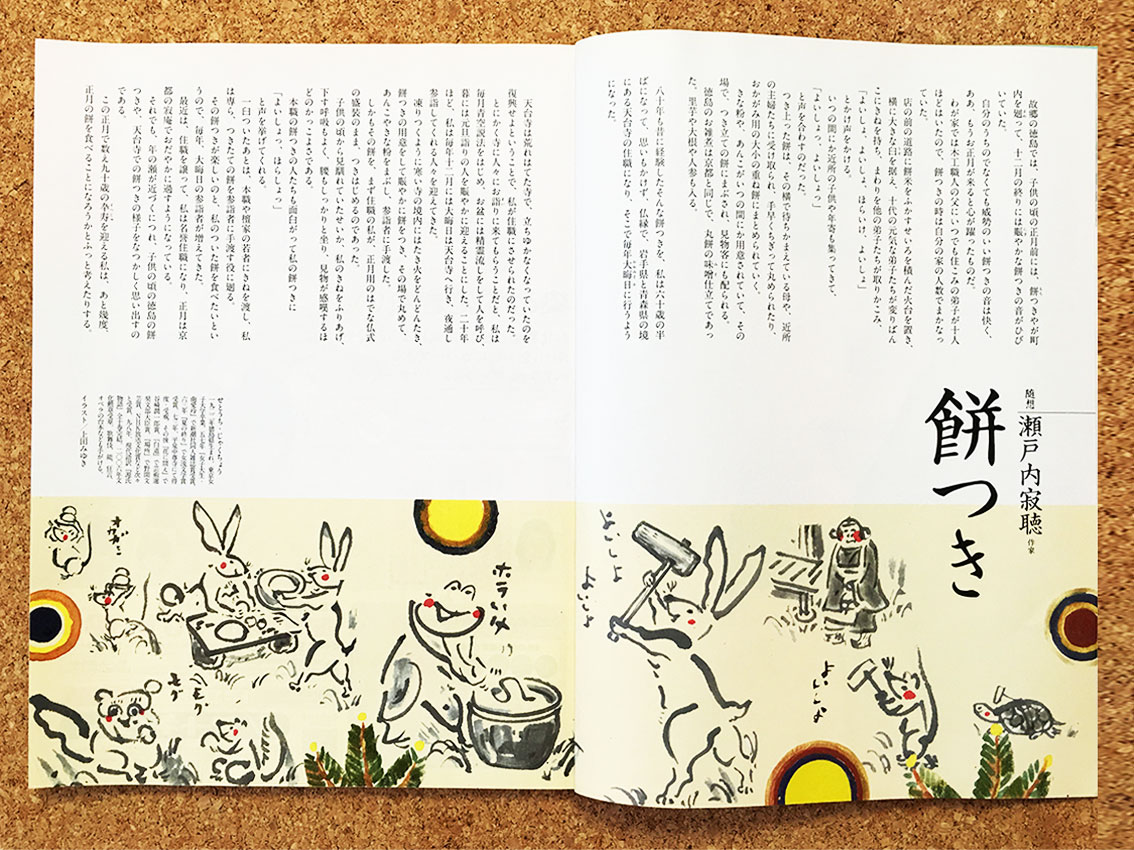 随想
瀬戸内寂聴 作家
餅つき
故郷の徳島では、子供の頃の正月前には、餅つきやが町
内を廻って、十二月の終りには賑やかな餅つきの音がひび
いていた。
自分のうちのでなくても威勢のいい餅つきの音は快く、
ああ、もうお正月が来ると心が躍ったものだ。
わが家では木工職人の父にいつでも住こみの弟子が十人
ほどはいたので、餅つきの時は自分の家の人数でまかなっ
ていた。
店の前の道路に餅米をふかすせいろを積んだ火台を置き、
横に大きな臼を据え、十代の元気な弟子たちが変りばん
こにきねを持ち、まわりを他の弟子たちが取りかこみ、
「よいしょ、よいしょ、ほらいけ、よいしょ」
とかけ声をかける。
いつの間にか近所の子供や年寄も集ってきて、
「よいしょっ、よいしょっ」
と声を合わすのだった。
つき上った餅は、その横で待ちかまえている母や、近所
の主婦たちに受け取られ、手早くちぎって丸められたり、
おかがみ用の大小の重ね餅にまとめられていく。
きな粉や、あんこがいつの間にか用意されていて、その
場で、つき立ての餅にまぶされ、見物客にも配られる。
徳島のお雑煮は京都と同じで、丸餅の味噌仕立てであっ
た。里芋や大根や人参も入る。
八十年も昔に経験したそんな餅つきを、私は六十歳の半
ばになって、思いもかけず、仏縁で、岩手県と青森県の境
にある天台寺の住職になり、そこで毎年大晦日に行うよう
になった。
天台寺は荒れはてた寺で、立ちゆかなくなっていたのを
復興せよということで、私が住職にさせられたのだった。
とにかく寺に人々にお詣りに来てもらうことだと、私は
毎月青空説法をはじめ、お盆には精霊流しをして人を呼び、
暮には元旦詣りの人を賑やかに迎えることにした。二十年
ほど、私は毎年十二月には大晦日は天台寺へ行き、夜通し
参詣してくれる人々を迎えてきた。
凍りつくように寒い寺の境内にはたき火をどんどんたき、
餅つきの用意をして賑やかに餅をつき、その場で丸めて、
あんこやきな粉をまぶし、参詣者に手渡した。
しかもその餅を、まず住職の私が、正月用のはでな仏式
の盛装のまま、つきはじめるのであった。
子供の頃から見馴れていたせいか、私のきねをふりあげ、
下す呼吸もよく、腰もしっかりと坐り、見物が感嘆するほ
どのかっこよさである。
本職の餅つきの人たちも面白がって私の餅つきに
「よいしょっ、ほらしょっ」
と声を挙げてくれる。
一臼ついたあとは、本職や檀家の若者にきねを渡し、私
は専ら、つきたての餅を参詣者に手渡す役に廻る。
その餅つきが楽しいのと、私のついた餅を食べたいとい
うので、毎年、大晦日の参詣者が増えてきた。
最近は、住職を譲って、私は名誉住職になり、正月は京
都の寂庵でおだやかに過すようになっている。
それでも、年の瀬が近づくにつれ、子供の頃の徳島の餅
つきや、天台寺での餅つきの様子をなつかしく思い出すの
である。
この正月で数え九十歳の卒寿を迎える私は、あと幾度、
正月の餅を食べることになろうかとふっと考えたりする。
せとうち・じゃくちょう
イラスト／上田みゆき
よいしょ
よいしょ
よいしょ
ホライケ
モグ
モグ